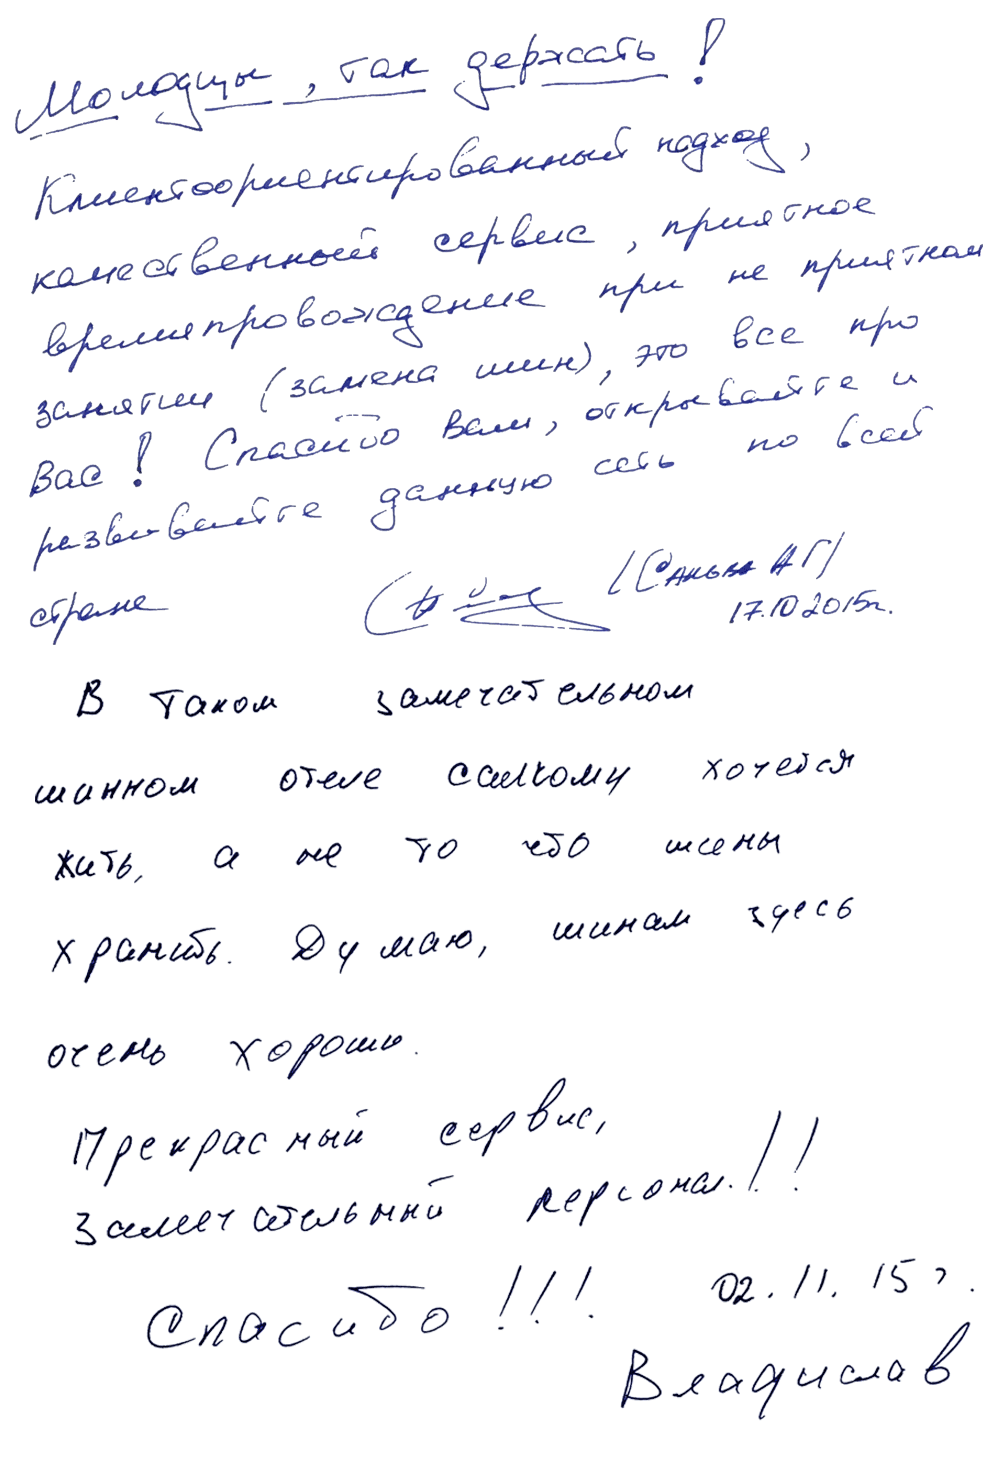 Молодцы, так держать!
Клиентоориентированный подход,
качественный сервис, приятное
времяпровождение при не приятном
занятии (замена шин), это все про
Вас! Спасибо Вам, открывайте и
развивайте данную сеть по всей
стране
17.10.2015г.
В таком замечательном
шинном отеле самому хочется
жить, а не то что шины
хранить. Думаю, шинам здесь
очень хорошо.
Прекрасный сервис,
Замечательный персонал!!
Спасибо!!! 02.11.15г.
Владислав